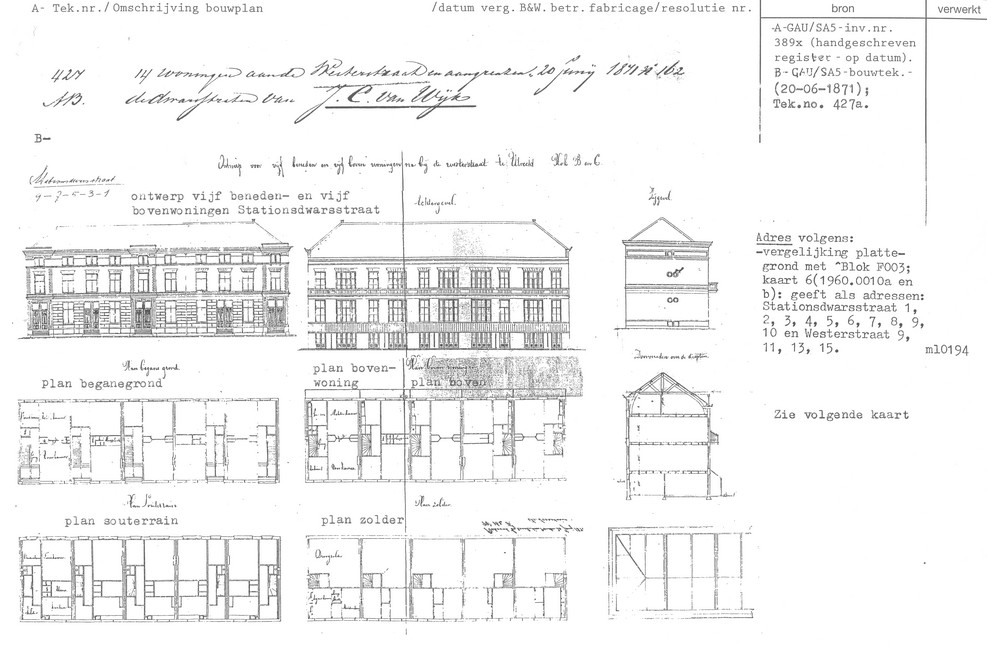 A- Tek.nr./Omschrijving bouwplan /datum verg. B&W. betr. fabricage/resolutie nr. bron verwerkt
427 14 woningen aan de Westerstraat en aangrenzen. 20 Junij 1871 No 162
AB. de dwarsstraten van J. C. van Wijk
A-GAU/SA5-inv.nr.
389x (handgeschreven
register - op datum).
B-GAU/SA5-bouwtek.-
(20-06-1871);
Tek.no. 427a.
B-
Ontwerp voor vijf beneden en vijf boven woningen bij de westerstraat te Utrecht Blok B en C.
Stationsdwarsstraat
9-7-5-3-1
ontwerp vijf beneden- en vijf
bovenwoningen Stationsdwarsstraat
Achtergevel.
Zijgevel.
Adres volgens:
-vergelijking platte-
grond met "Blok F003;
kaart 6(1960.0010a en
b): geeft als adressen:
Stationsdwarsstraat 1,
2, 3, 4, 5, 6, 7, 8, 9,
10 en Westerstraat 9,
11, 13, 15.
ml0194
Zie volgende kaart
Plan begane grond
plan beganegrond
plan boven-
woning
Plan boven woningen
plan boven
Doorsneden over de
Plan Souterrain
plan souterrain
Plan zolder
plan zolder